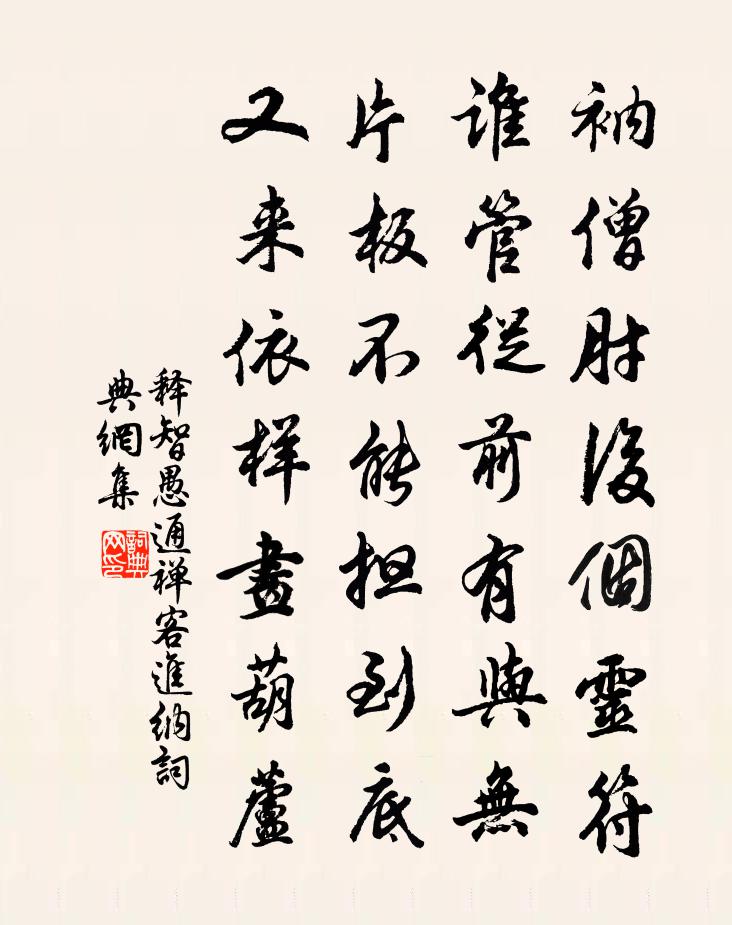 衲僧肘後個靈符
誰管從前有與無
片板不能担到底
又来依样畫葫蘆
释智愚通禅客進納詞
典網集
詞典网印